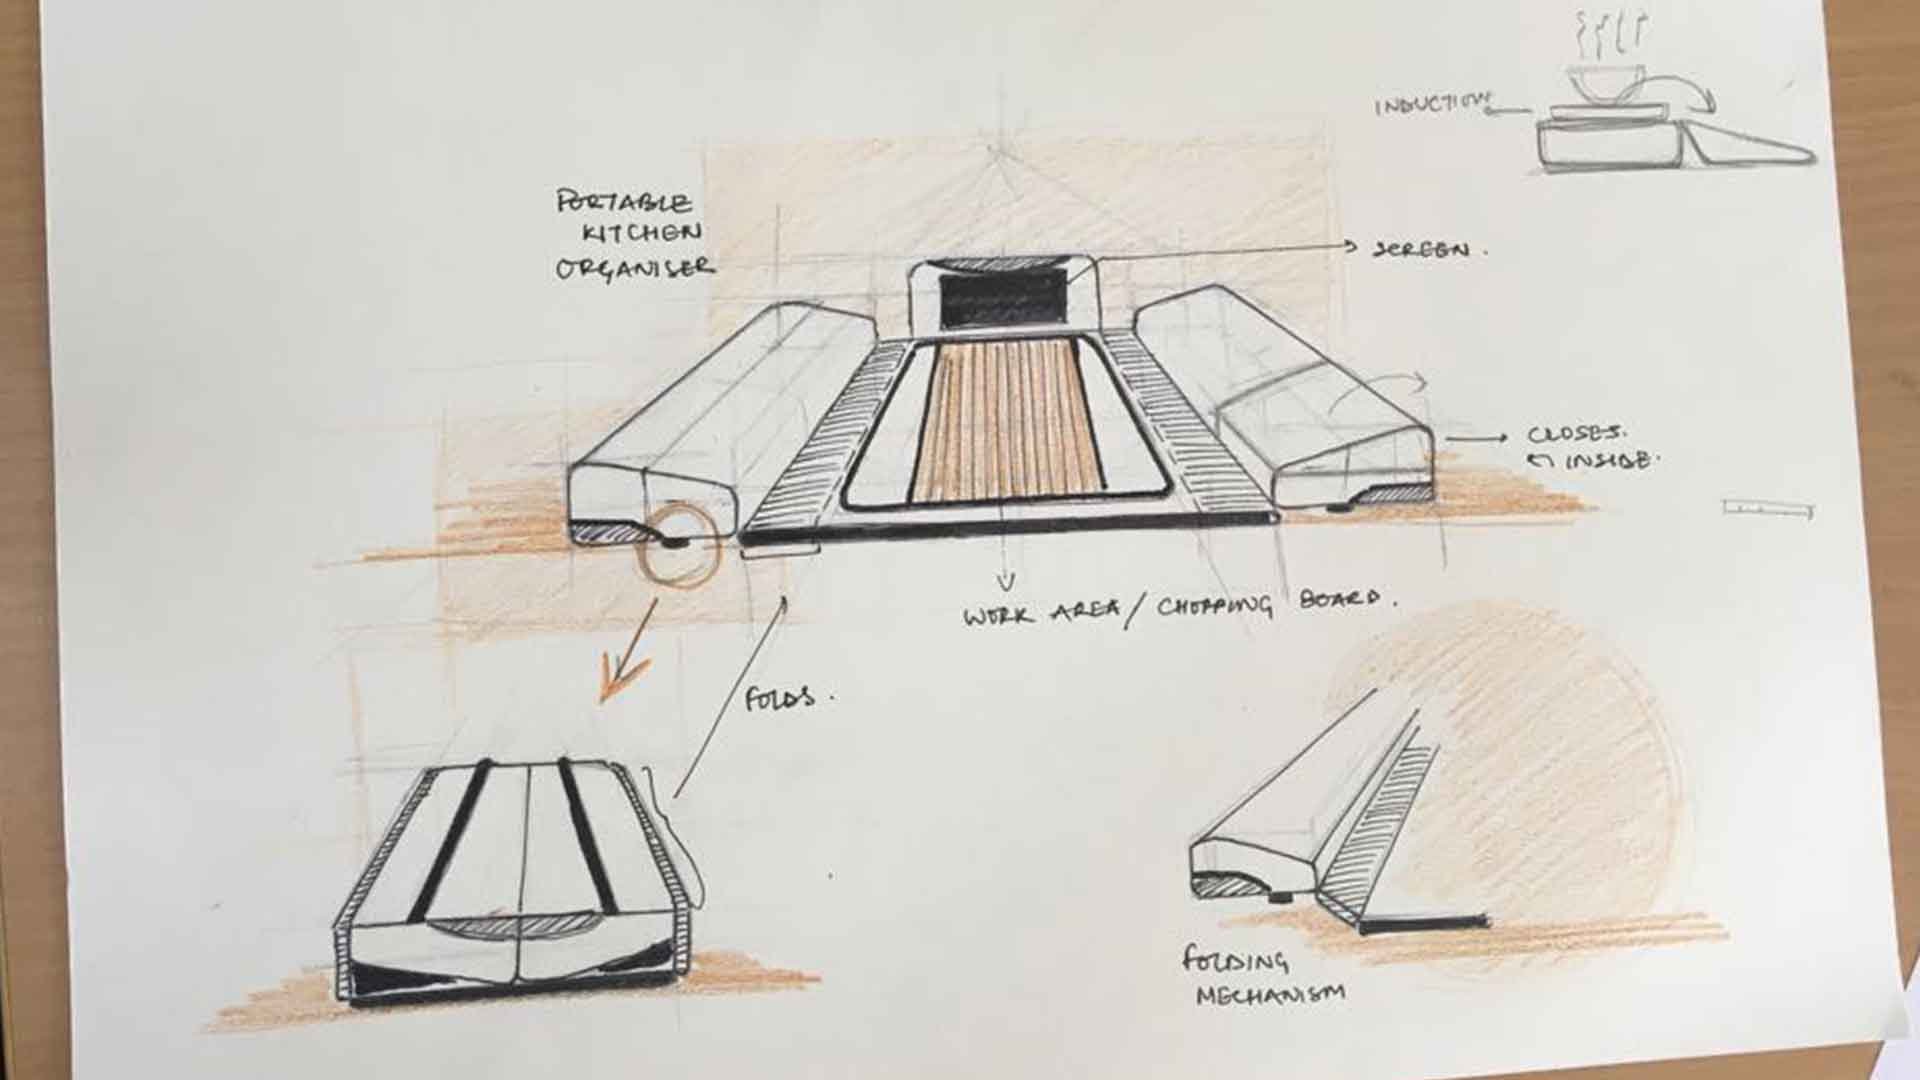 INDUCTION
PORTABLE
KITCHEN
ORGANISER
SCREEN.
CLOSES.
INSIDE.
WORK AREA/ CHOPPING BOARD.
FOLDS.
FOLDING
MECHANISM